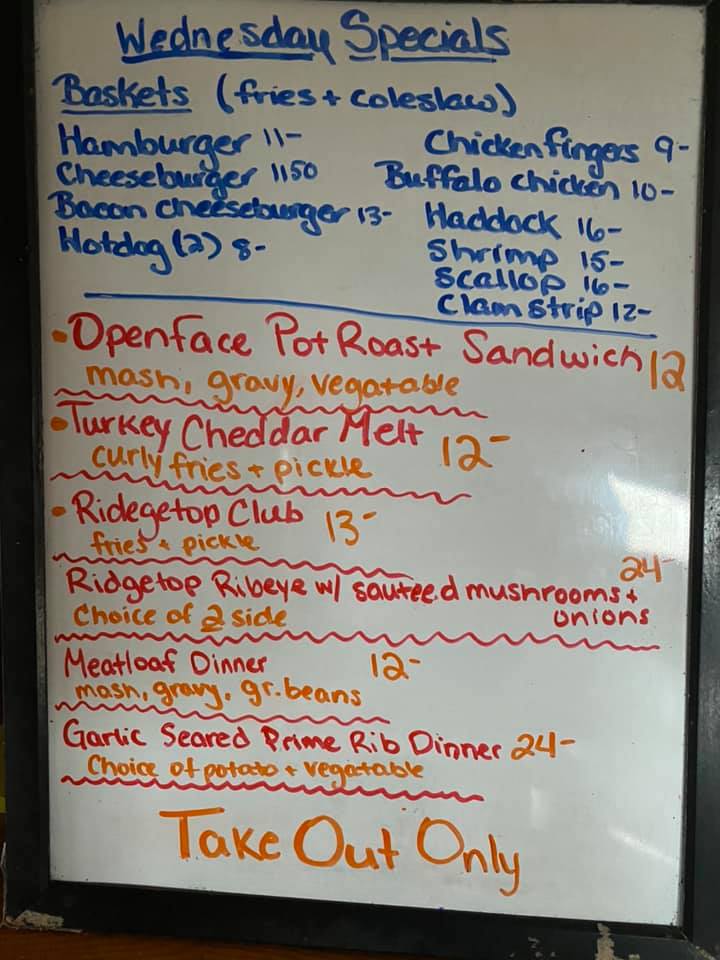 Wednesday Specials
Baskets (fries + coleslaw)
Hamburger 11-
Cheeseburger 1150
Bacon cheeseburger 13-
Hotdog (2) 8-
Chicken fingers 9-
Buffalo chicken 10-
Haddock 16-
Shrimp 15-
Scallop 16-
Clam Strip 12-
• Openface Pot Roast Sandwich 12
mash, gravy, vegatable
• Turkey Cheddar Melt 12-
curly fries + pickle
• Ridegetop Club 13-
fries + pickle
24-
Ridgetop Ribeye w/ sauteed mushrooms +
Choice of 2 side onions
Meatloaf Dinner 12-
mash, gravy, gr. beans
Garlic Seared Prime Rib Dinner 24-
Choice of potato + vegatable
Take Out Only